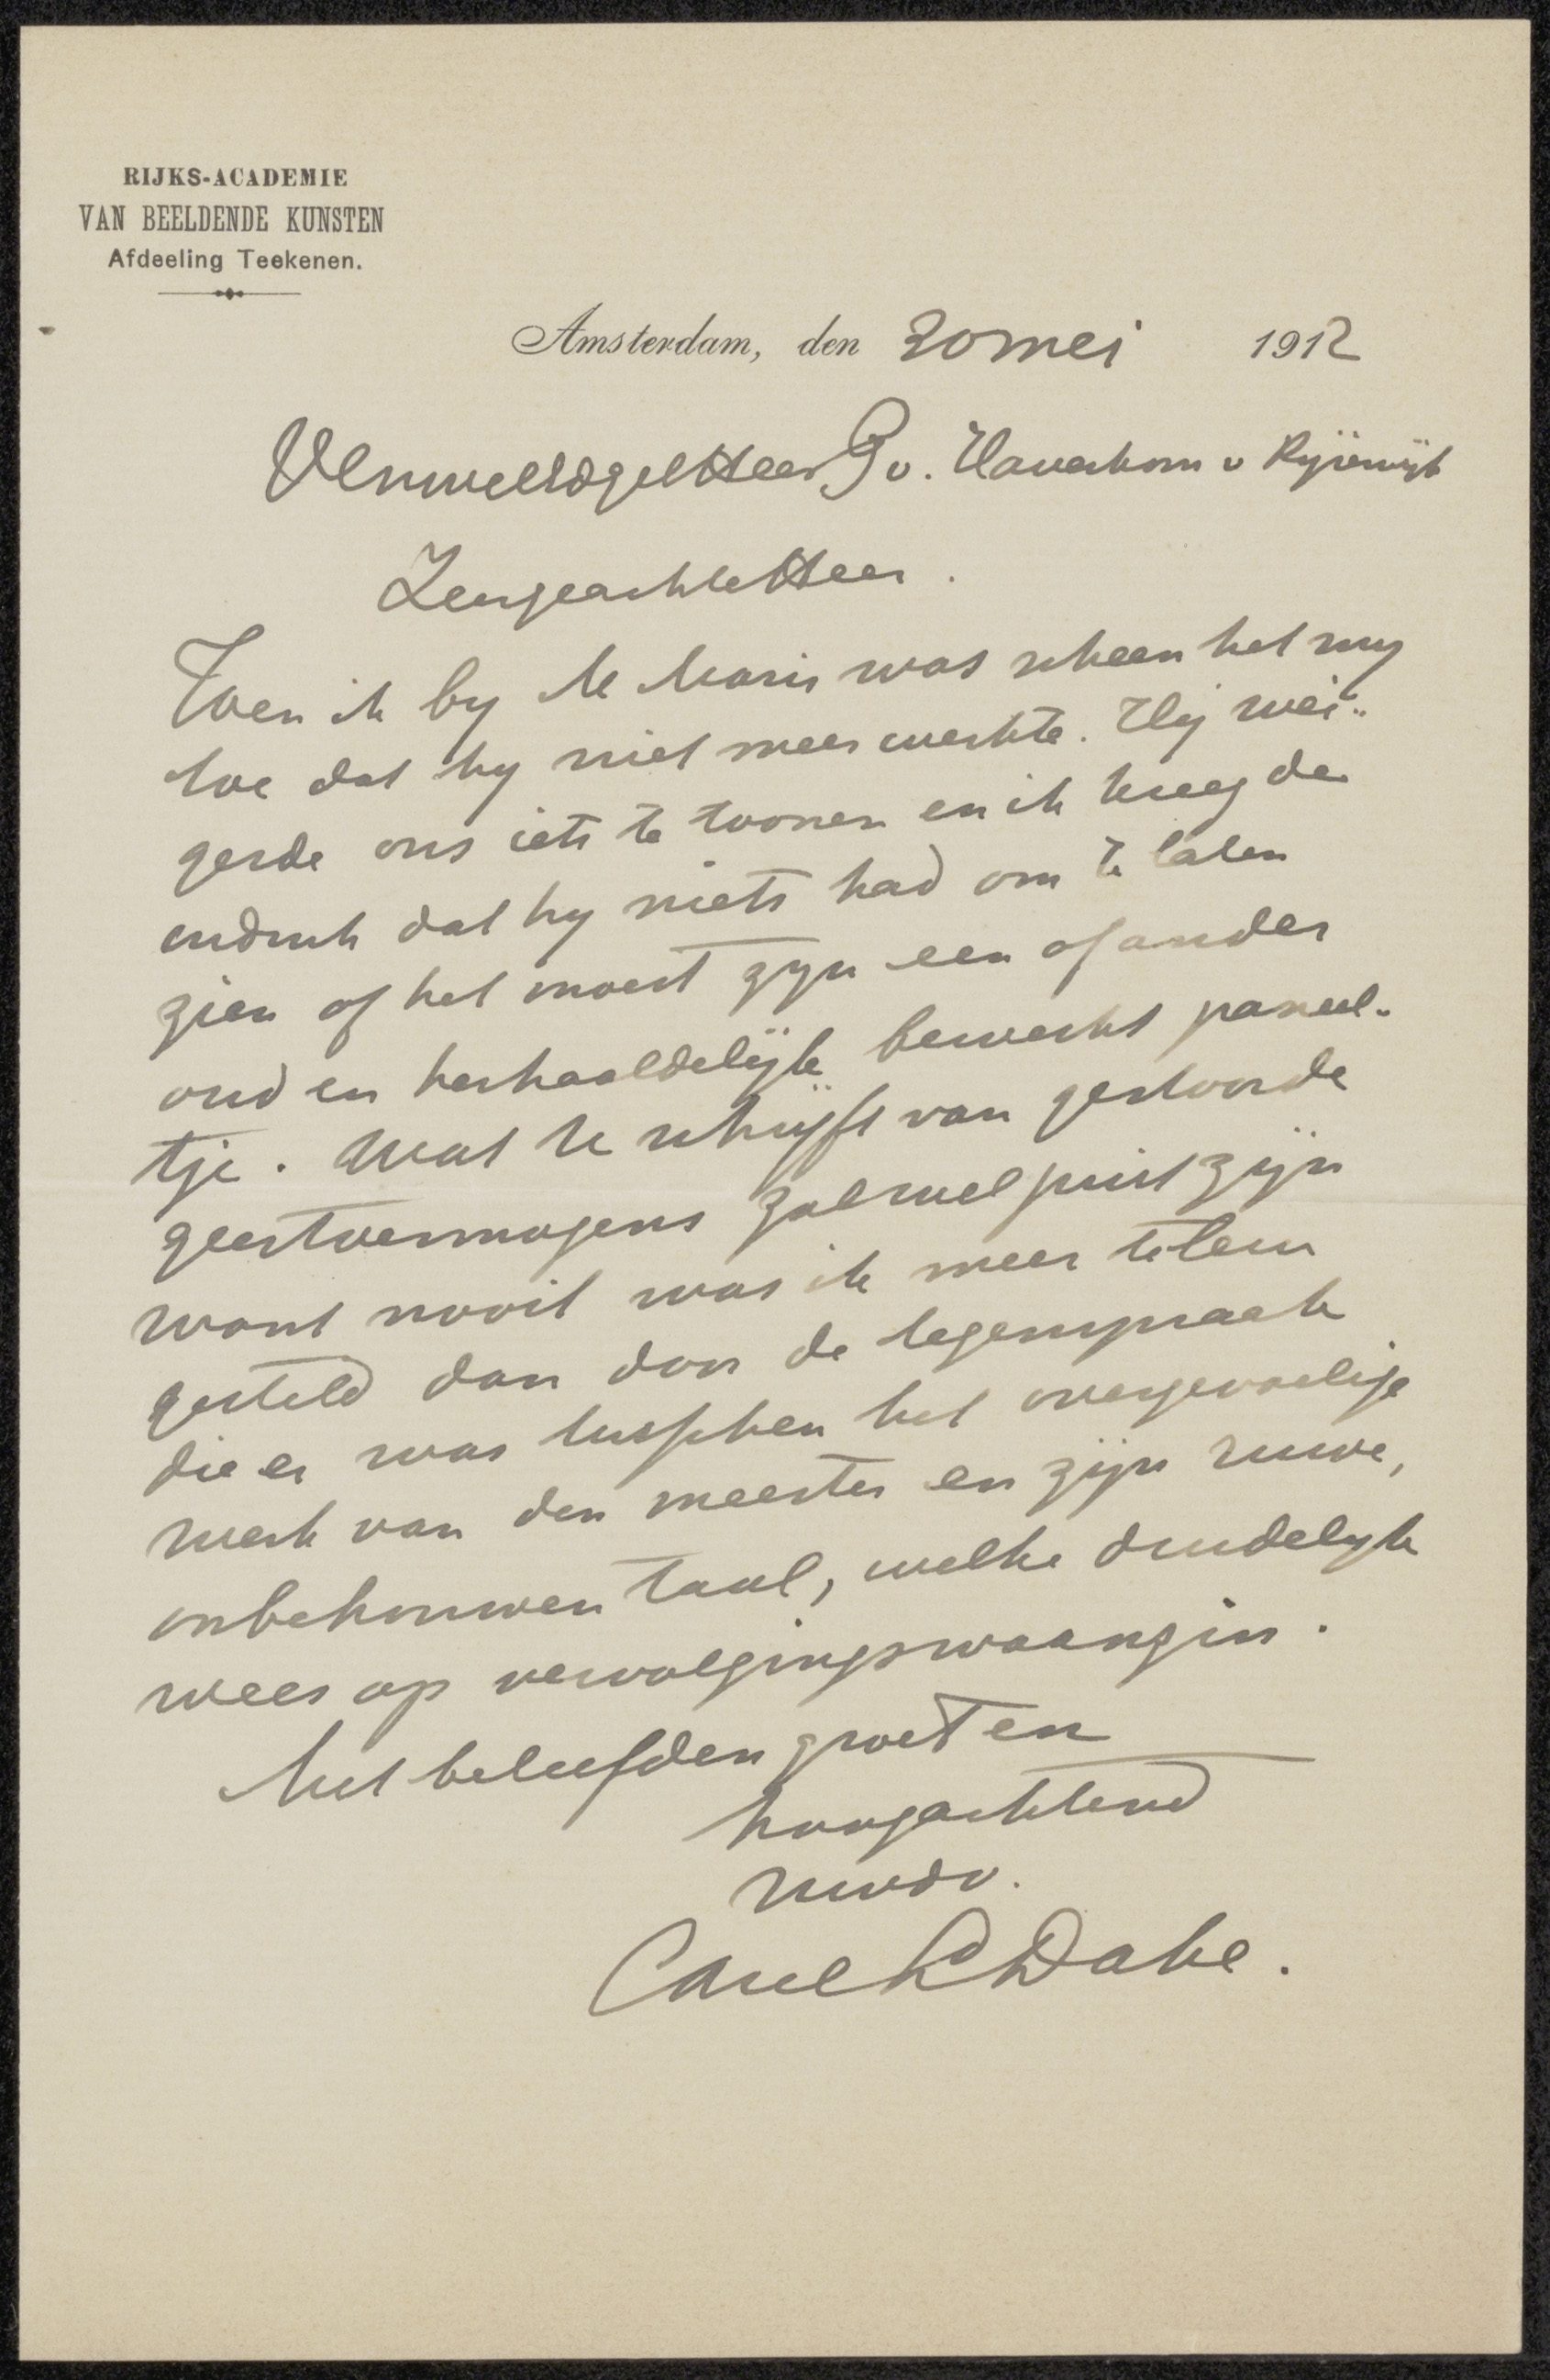 RIJKS-ACADEMIE
VAN BEELDENDE KUNSTEN
Afdeeling Teekenen.
Amsterdam, den 20 mei 1912
WelEdgeb Heer P v. Haverkorn v Rijsewijk
Zeergeachte Heer.
Toen ik by M Maris was scheen het my
toe dat hy niet meer werkte. Hij wei-
gerde ons iets te toonen en ik kreeg de
indruk dat hy niets had om te laten
zien of het moest zyn een of ander
oud en herhaaldelijk bewerkt paneel-
tje. Wat U schrijft van gestoorde
geestvermogens zal wel juist zijn
want nooit was ik meer teleur
gesteld dan door de tegenspraak
die er was tusschen het overgevoelige
werk van den meester en zijn ruwe,
onbehouwen taal, welke duidelyk
wees op vervolgingswaanzin.
Met beleefden groeten
hoogachtend
Uwdv.
Carel L Dake.